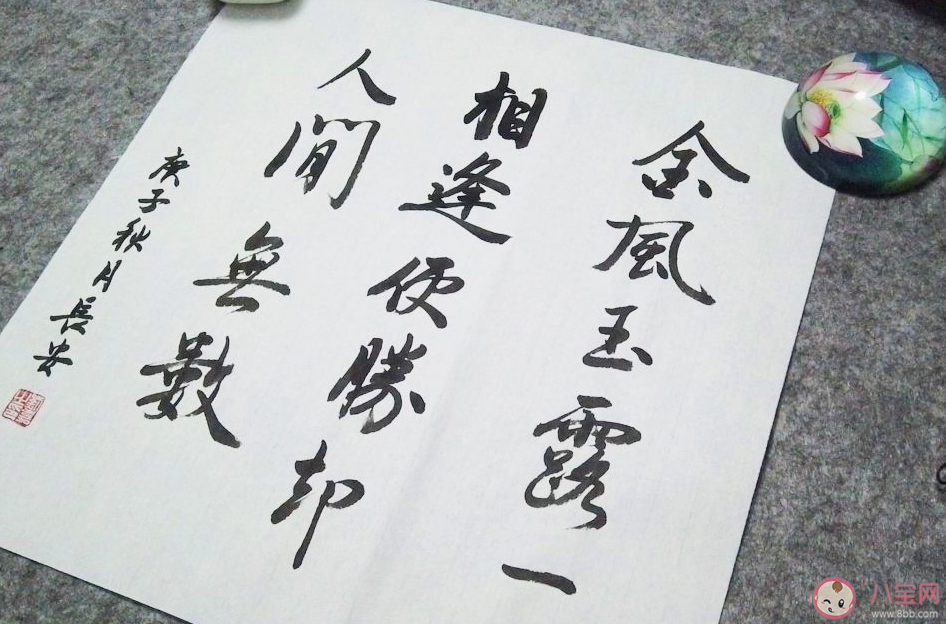 金風玉露一
相逢便勝却
人間無數
庚子秋月長安
八宝网
www.8bb.com